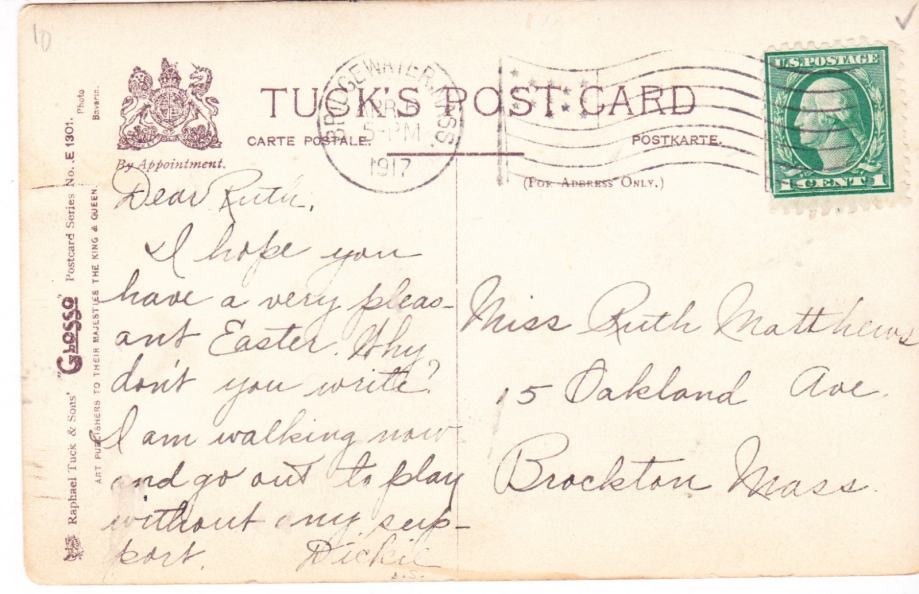 10
TUCK'S POST CARD
CARTE POSTALE.
POSTKARTE.
(FOR ADDRESS ONLY.)
By Appointment.
BRIDGEWATER, MASS.
5-PM
1917
U.S. POSTAGE
1 CENT 1
Raphael Tuck & Sons' "GLOSSO" Postcard Series No. E 1301.
Photo
Bavaria.
ART PUBLISHERS TO THEIR MAJESTIES THE KING & QUEEN.
Dear Ruth,
I hope you
have a very pleas-
ant Easter. Why
don't you write?
I am walking now
and go out to play
without any sup-
port. Dickie
Miss Ruth Matthews
15 Oakland Ave.
Brockton Mass.